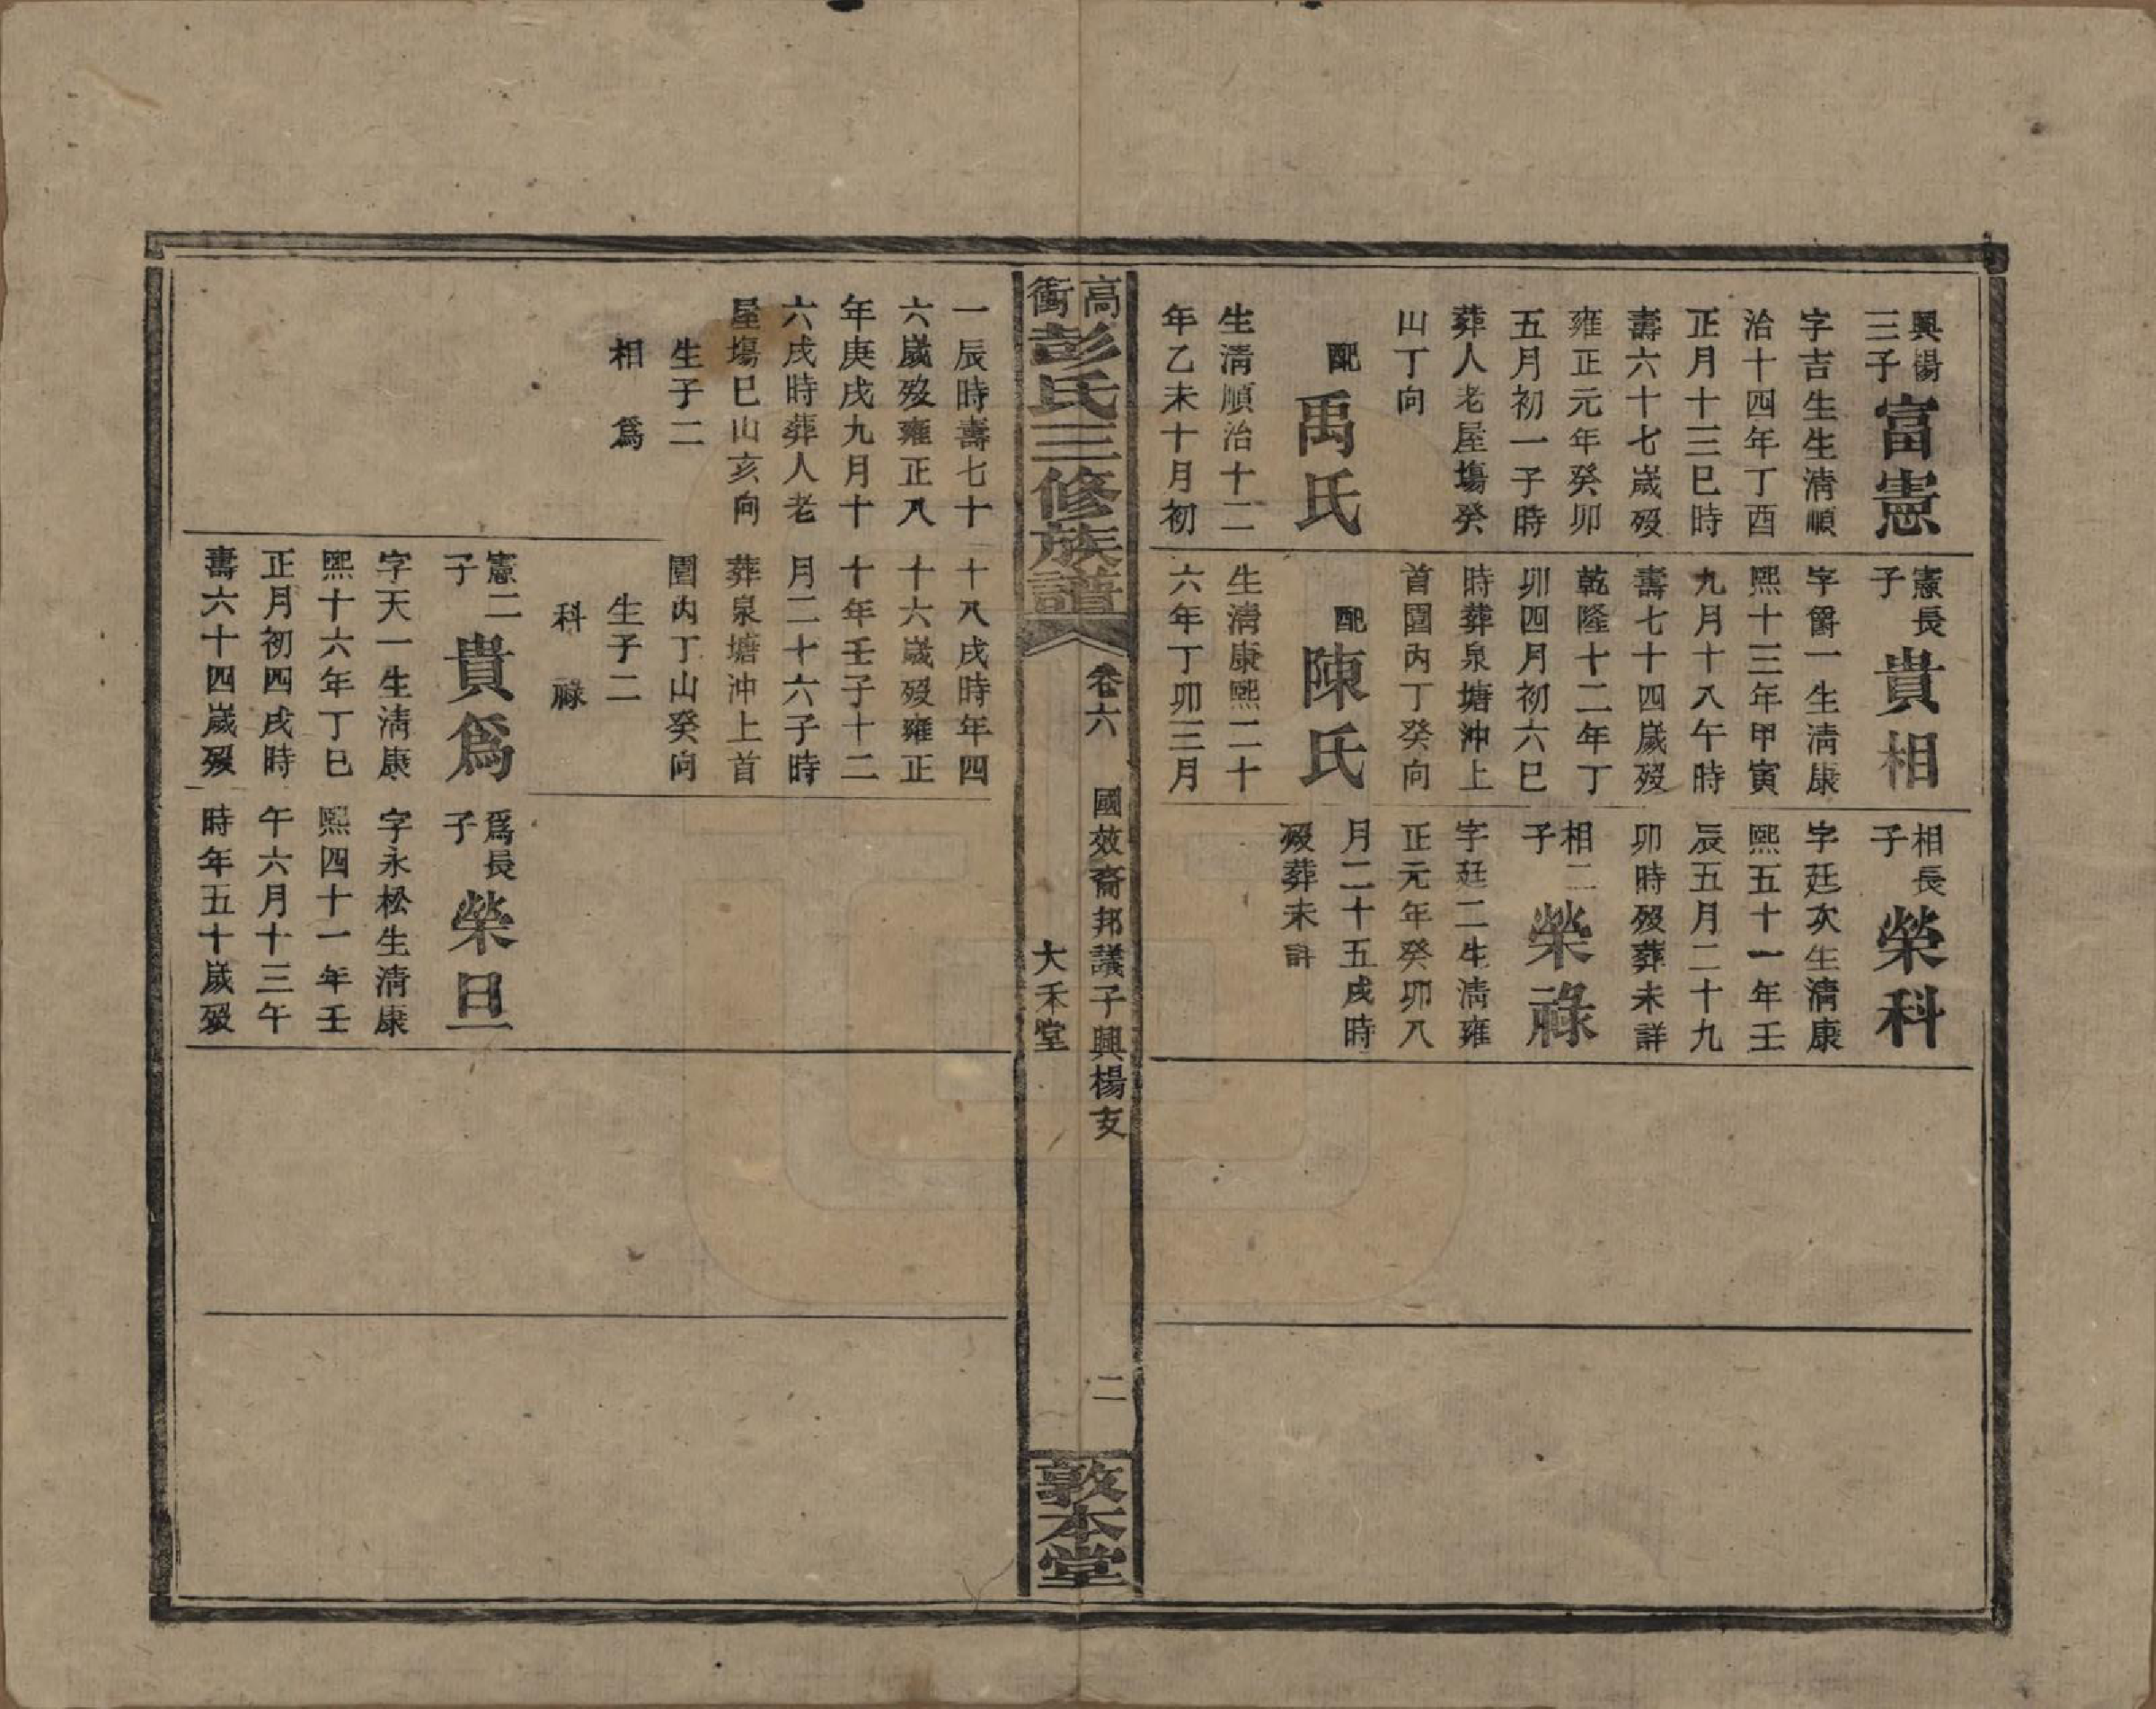 興楊
三子
富憲
字吉生生淸順
治十四年丁酉
正月十三巳時
壽六十七歲歿
雍正元年癸卯
五月初一子時
葬人老屋塲癸
山丁向
配
禹氏
生淸順治十二
年乙未十月初
憲長
子
貴相
字爵一生淸康
熙十三年甲寅
九月十八午時
壽七十四歲歿
乾隆十二年丁
卯四月初六巳
時葬泉塘沖上
首園內丁癸向
配
陳氏
生淸康熙二十
六年丁卯三月
相長
子
榮科
字廷次生淸康
熙五十一年壬
辰五月二十九
卯時歿葬未詳
相二
子
榮祿
字廷二生淸雍
正元年癸卯八
月二十五戌時
歿葬未詳
高
衝
彭氏三修族譜
卷六
國效裔邦議子興楊支
大禾堂
二
敦本堂
一辰時壽七十
六歲歿雍正八
年庚戌九月十
六戌時葬人老
屋塲巳山亥向
生子二
相 爲
十八戌時年四
十六歲歿雍正
十年壬子十二
月二十六子時
葬泉塘沖上首
園內丁山癸向
生子二
科 祿
憲二
子
貴爲
字天一生淸康
熙十六年丁巳
正月初四戌時
壽六十四歲歿
爲長
子
榮旦
字永松生淸康
熙四十一年壬
午六月十三午
時年五十歲歿